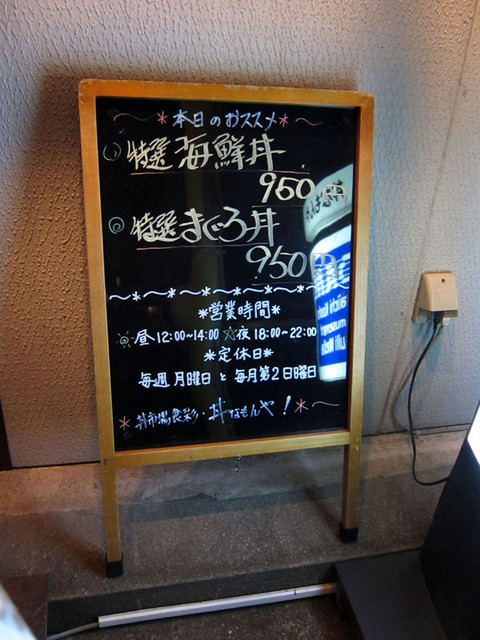 本日のおススメ
特選 海鮮丼
950円
特選 まぐろ丼
950円
*営業時間*
昼 12:00~14:00 ☆夜 18:00~22:00
*定休日*
毎週 月曜日 と 毎月第2日曜日
丼市場食彩・丼なもんや!